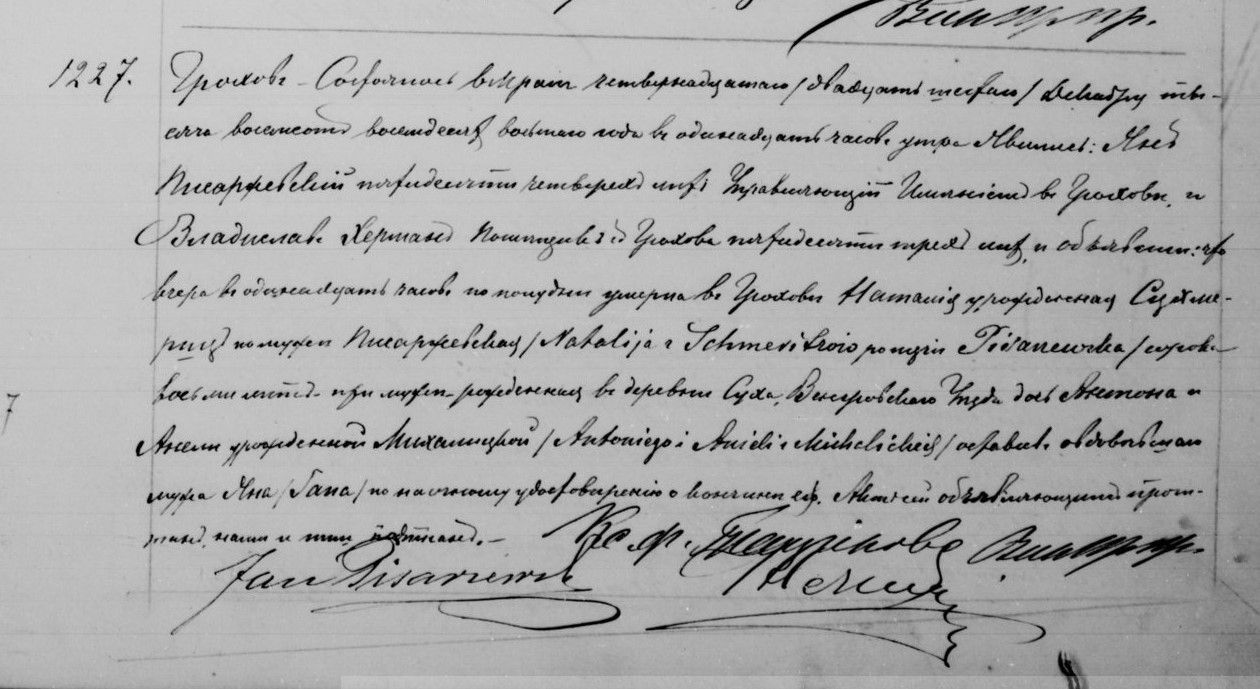 Викар пр.
1227.
Гроховъ. Состоялось въ Прагѣ четырнадцатаго /двадцать шестаго/ Декабря ты-
сяча восемсотъ восемдесятъ восьмаго года въ одинадцать часовъ утра Явились: Янъ
Писаржевскій пятидесяти четырехъ лѣтъ Управляющій Имѣніемъ въ Гроховѣ, и
Владиславъ Херманъ Помѣщикъ изъ Грохова пятидесяти трехъ лѣтъ, и объявили: что
вчера въ одинадцать часовъ по полудни умерла въ Гроховѣ Наталія урожденная
по мужѣ Писаржевская /Natalija z Pisarzewska/ сорока
восьми лѣтъ при мужѣ рожденная въ деревнѣ Суха, Венгровскаго Уѣзда дочь Антона и
Анели урожденной Михалицкой /Antoniego i Anieli z Michalickich/ оставивъ овдовѣвшаго
мужа Яна /Jana/ по наочному удостовѣренію о кончинѣ ея. Актъ сей объявляющимъ прочи-
танъ, нами и ими подписанъ. —
Кс. Викар пр.
Jan Pisarzewski